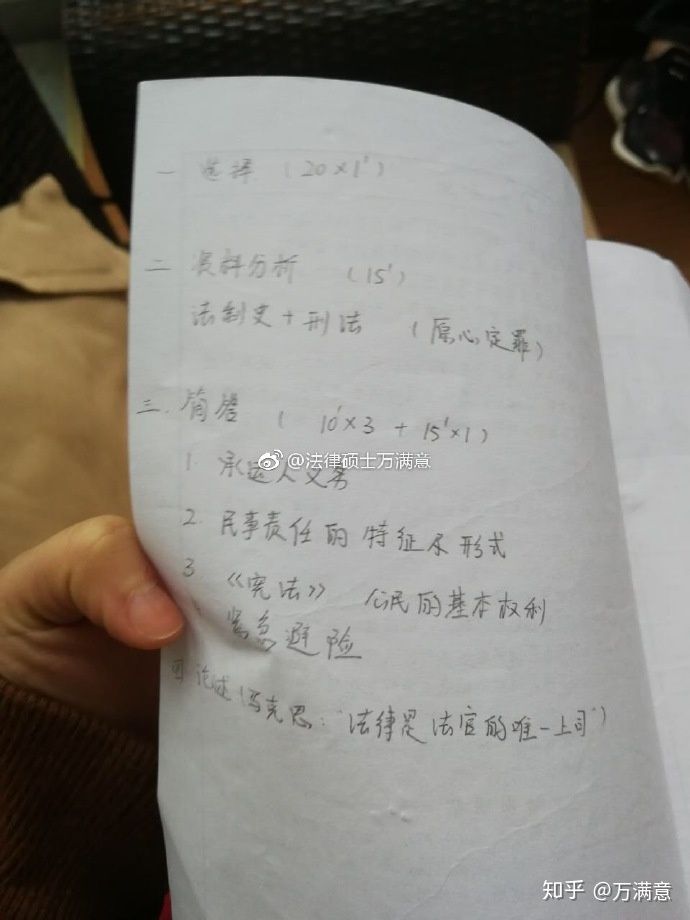 一 选择 (20×1')
二 材料分析 (15')
法制史+刑法 (原心定罪)
三. 简答 ( 10'×3 + 15'×1)
@法律硕士万满意
1. 承运人义务
2. 民事责任的特征及形式
3 《宪法》 公民的基本权利
紧急避险
四 论述(马克思:"法律是法官的唯一上司")
知乎 @万满意